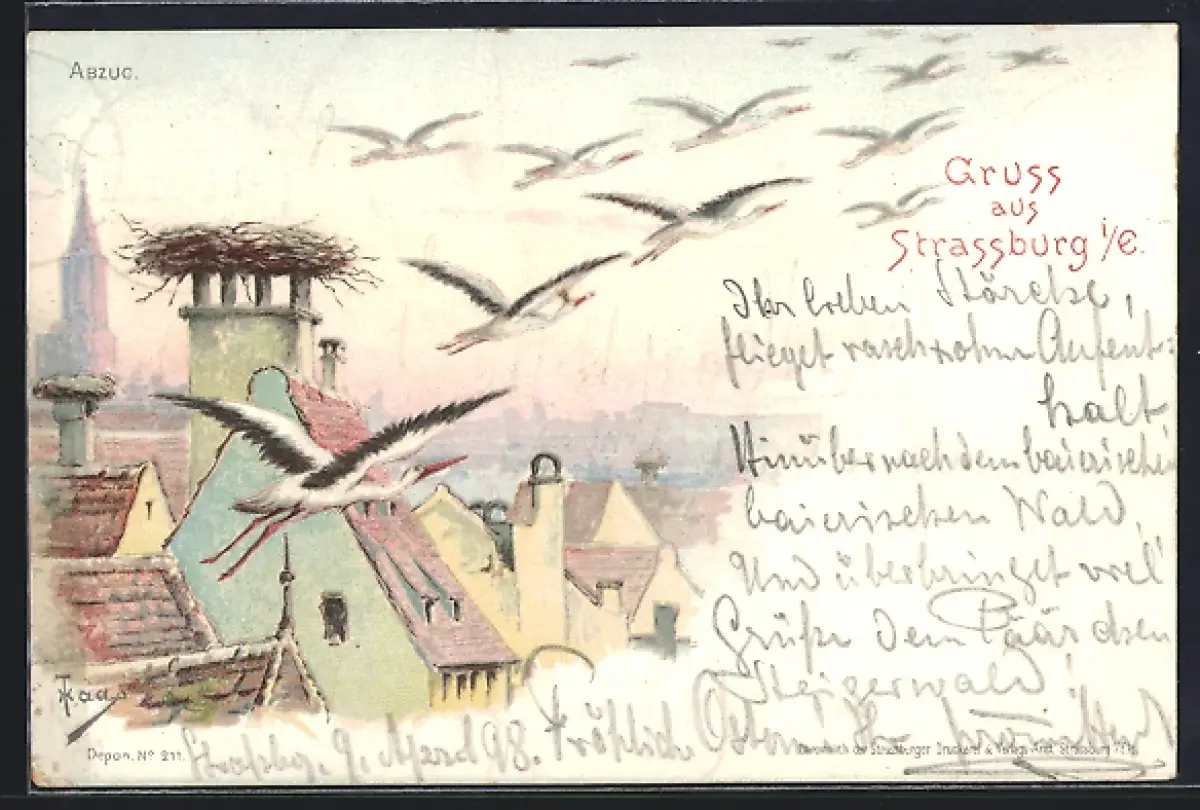 Abzug.
Gruss
aus
Strassburg i/E.
Ihr lieben Störche,
flieget rasch ohne Aufent-
halt,
Hinüber nach dem baierischen
baierischen Wald,
Und überbringet viel
Grüße dem Päärchen
Steigerwald!
Straßbg. 9. April 98. Fröhlich Ostern Ihr
Depon. No 211.
der Strassburger Druckerei & Verlags-Anst. Strassburg i/E.